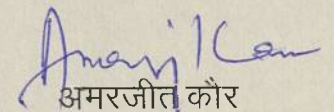 Amarjit Kaur
अमरजीत कौर